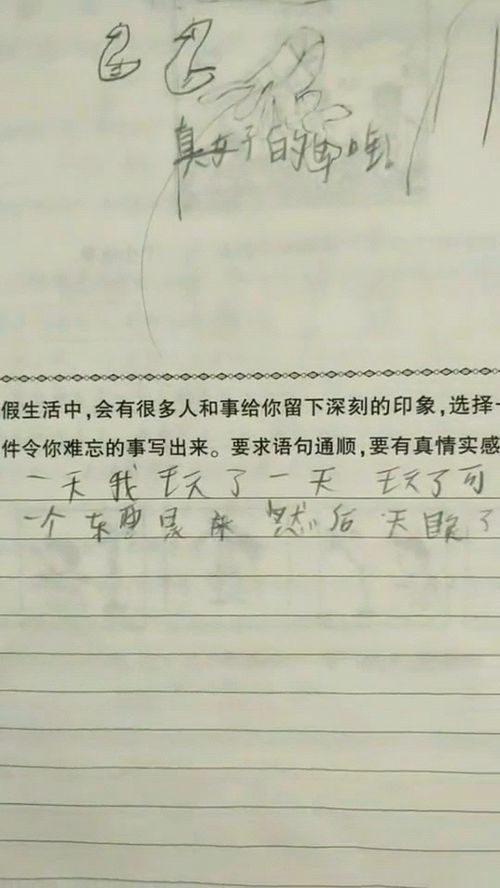 真好的
假生活中，会有很多人和事给你留下深刻的印象，选择
件令你难忘的事写出来。要求语句通顺，要有真情实感
一天我玩了一天 玩了可
一个东西 然后 天 了